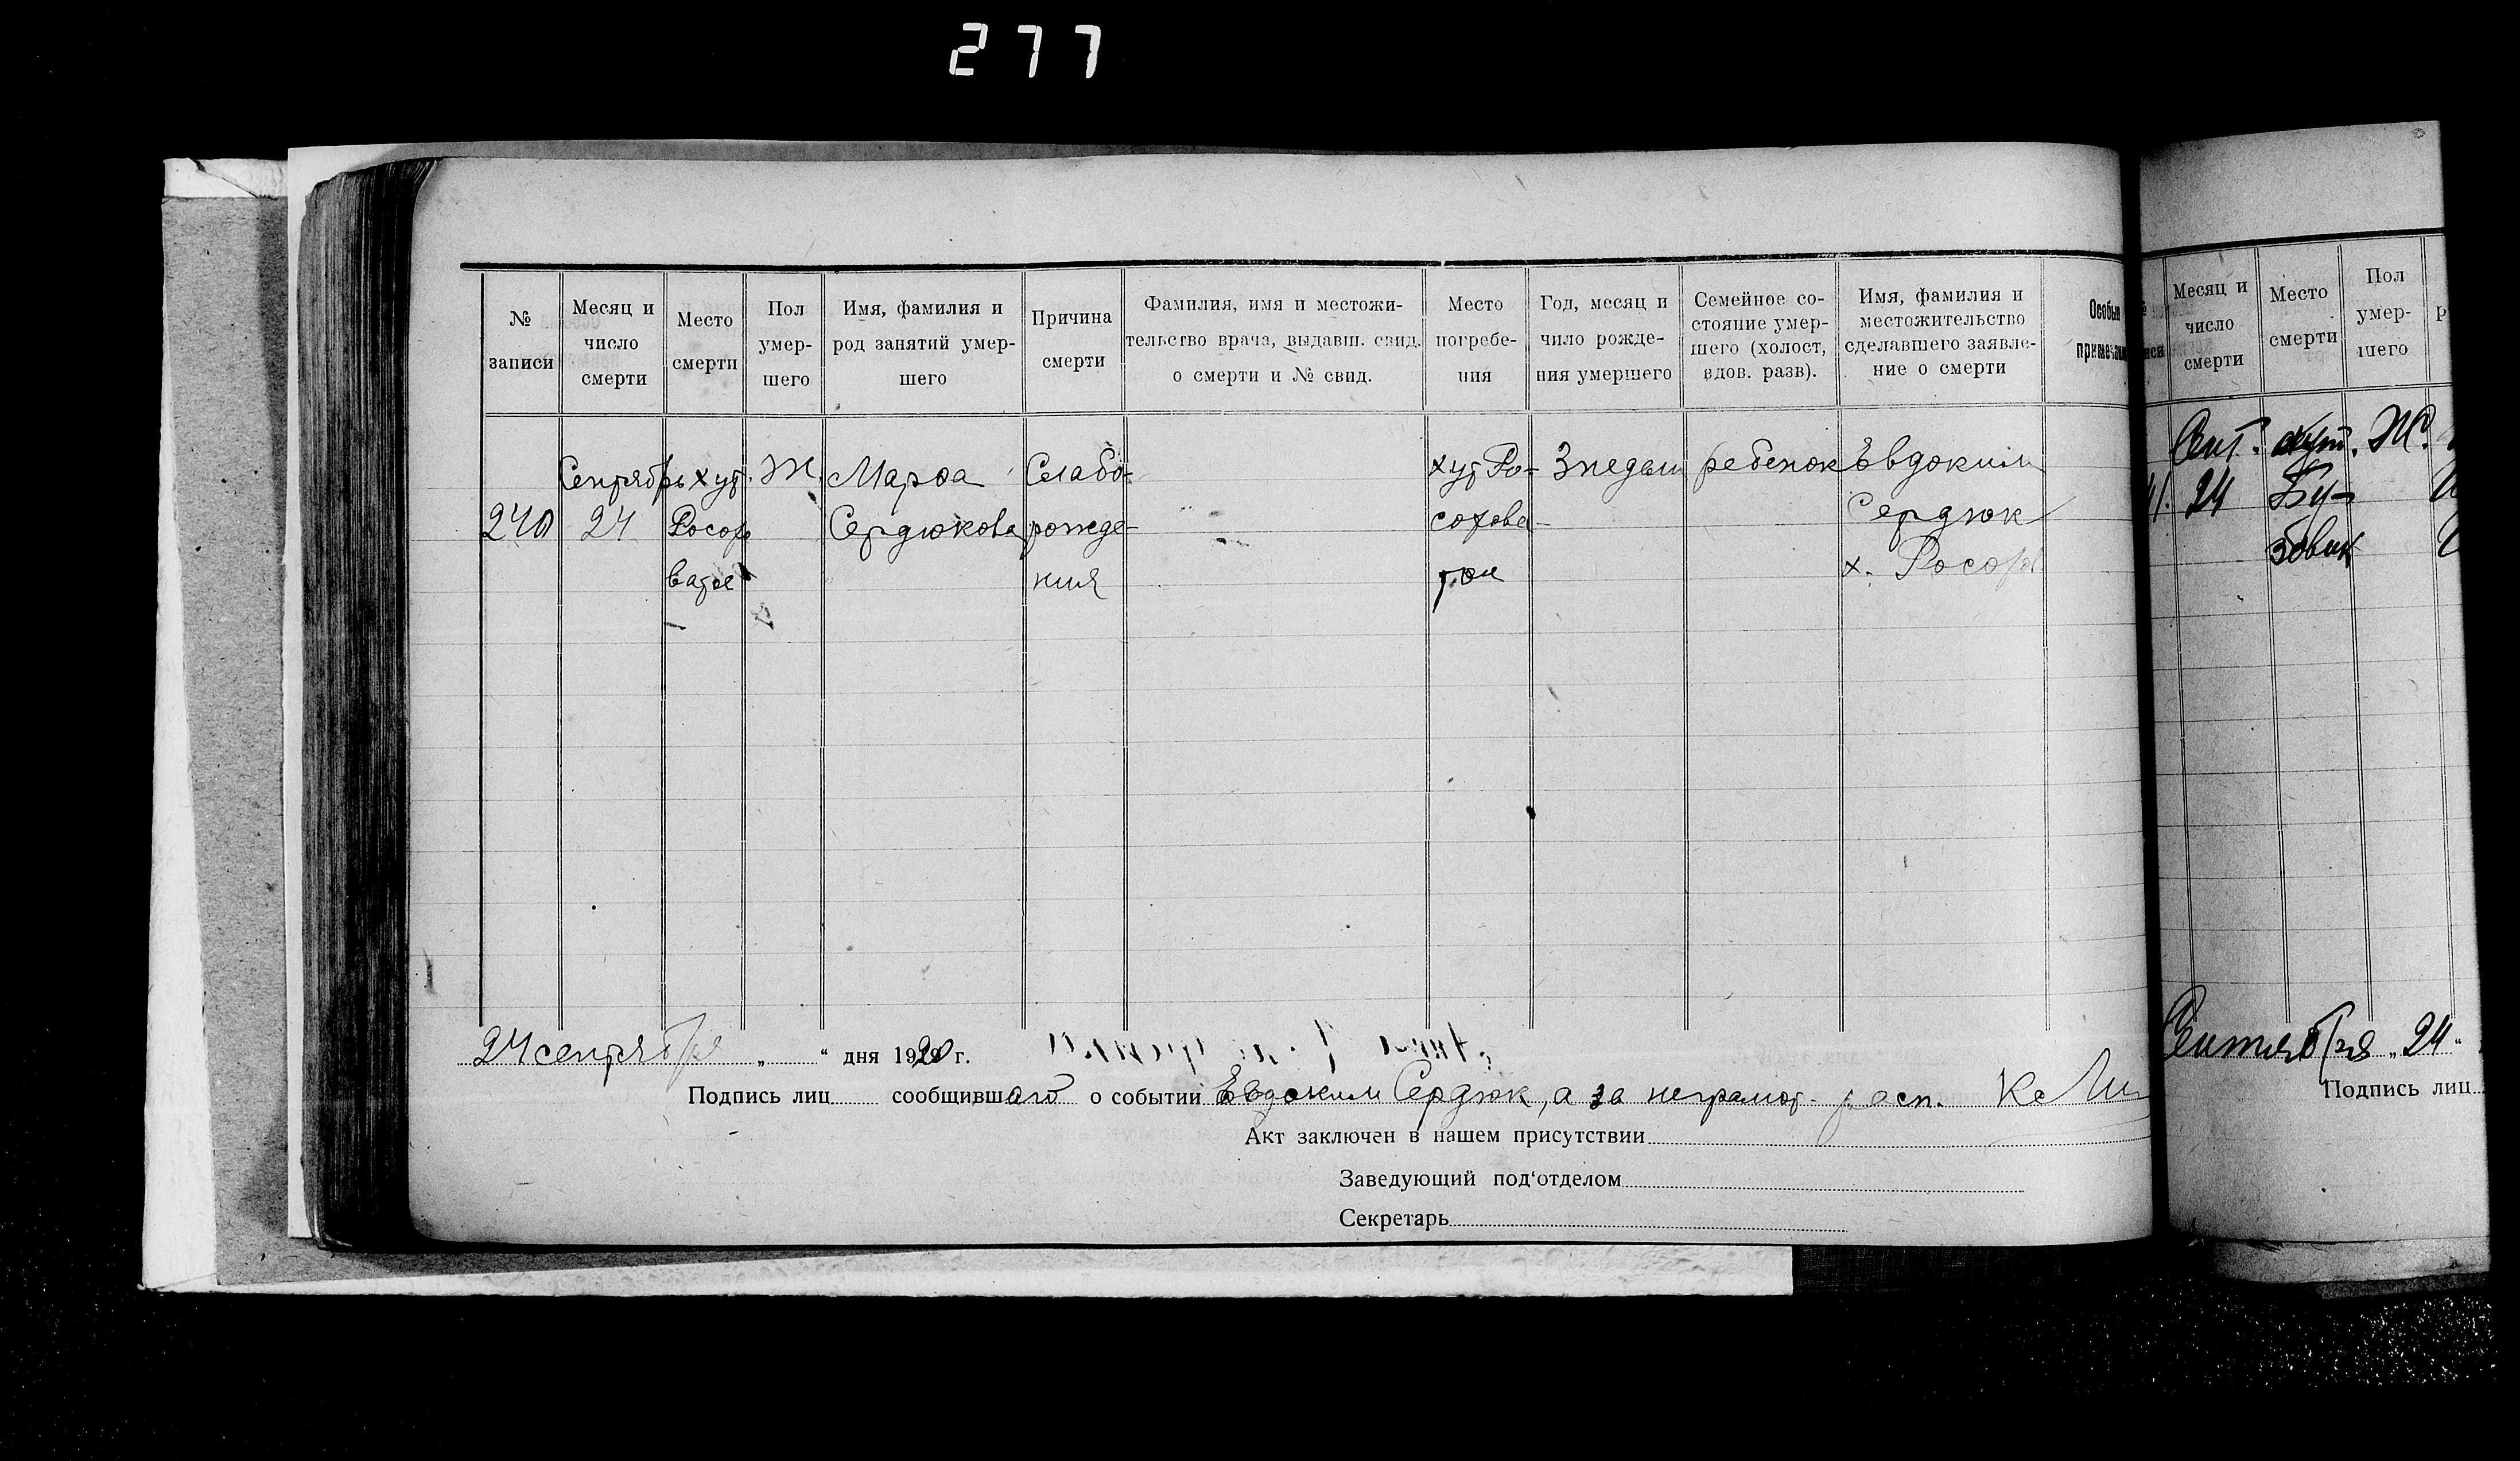 277
№ записи
Месяц и число смерти
Место смерти
Пол умер- шего
Имя, фамилия и род занятий умер- шего
Причина смерти
Фамилия, имя и местожи- тельство врача, выдавш. свид. о смерти и № свид.
Место погребе- ния
Год, месяц и чило рожде- ния умершего
Семейное со- стояние умер- шего (холост, вдов. разв).
Имя, фамилия и местожительство сделавшего заявле- ние о смерти
Особые
240
Сентябрь 24
хут. Росох ватое
Ж.
Марфа Сердюкова
Слабо- рожде- ния
хут Ро- сохова- том
3 недели
ребенок
Евдоким
Сердюк
х. Росох
24 сентября „ “ дня 1920 г.
Подпись лиц сообщившаго о событии Евдоким Сердюк, а за неграмот. расп.
Акт заключен в нашем присутствии
Заведующий под‘отделом
Секретарь
Месяц и число смерти
Место смерти
Пол умер- шего
Сент. 24
хут.
Ж.
Сентября „ 24 “
Подпись лиц